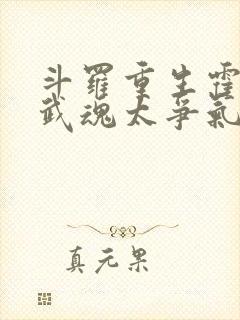 斗羅重生霍
武魂太爭氣
真元果